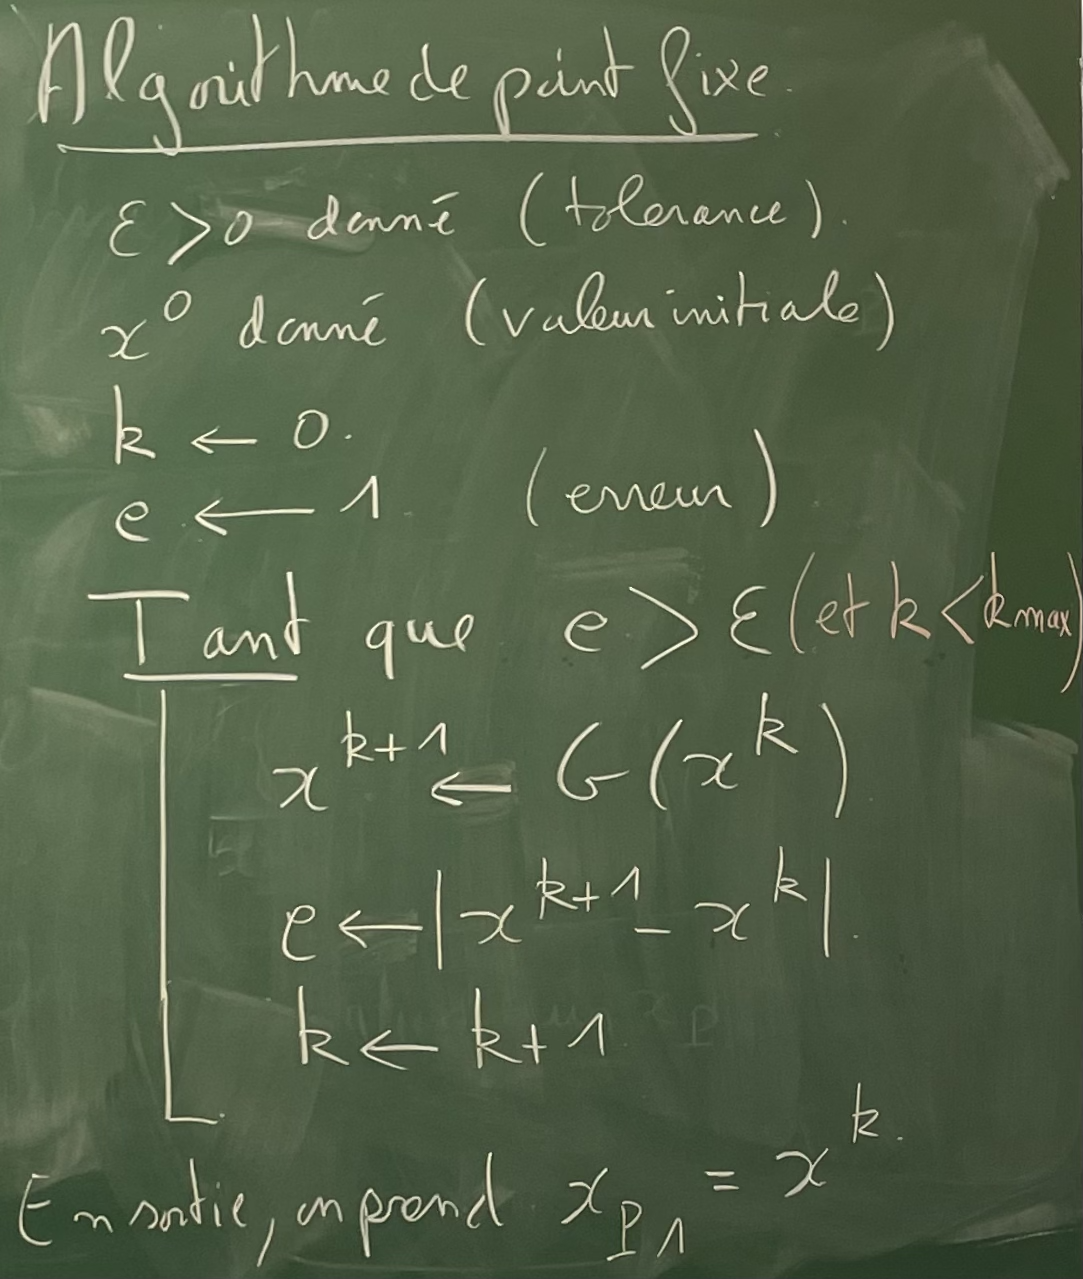 Algorithme de point fixe.
ε > 0 donné (tolerance).
x⁰ donné (valeur initiale)
k ← 0.
e ← 1 (erreur)
Tant que e > ε (et k < kmax)
x^{k+1} ← G(x^k)
e ← |x^{k+1} - x^k|.
k ← k+1
En sortie, on prend x_{P1} = x^k.